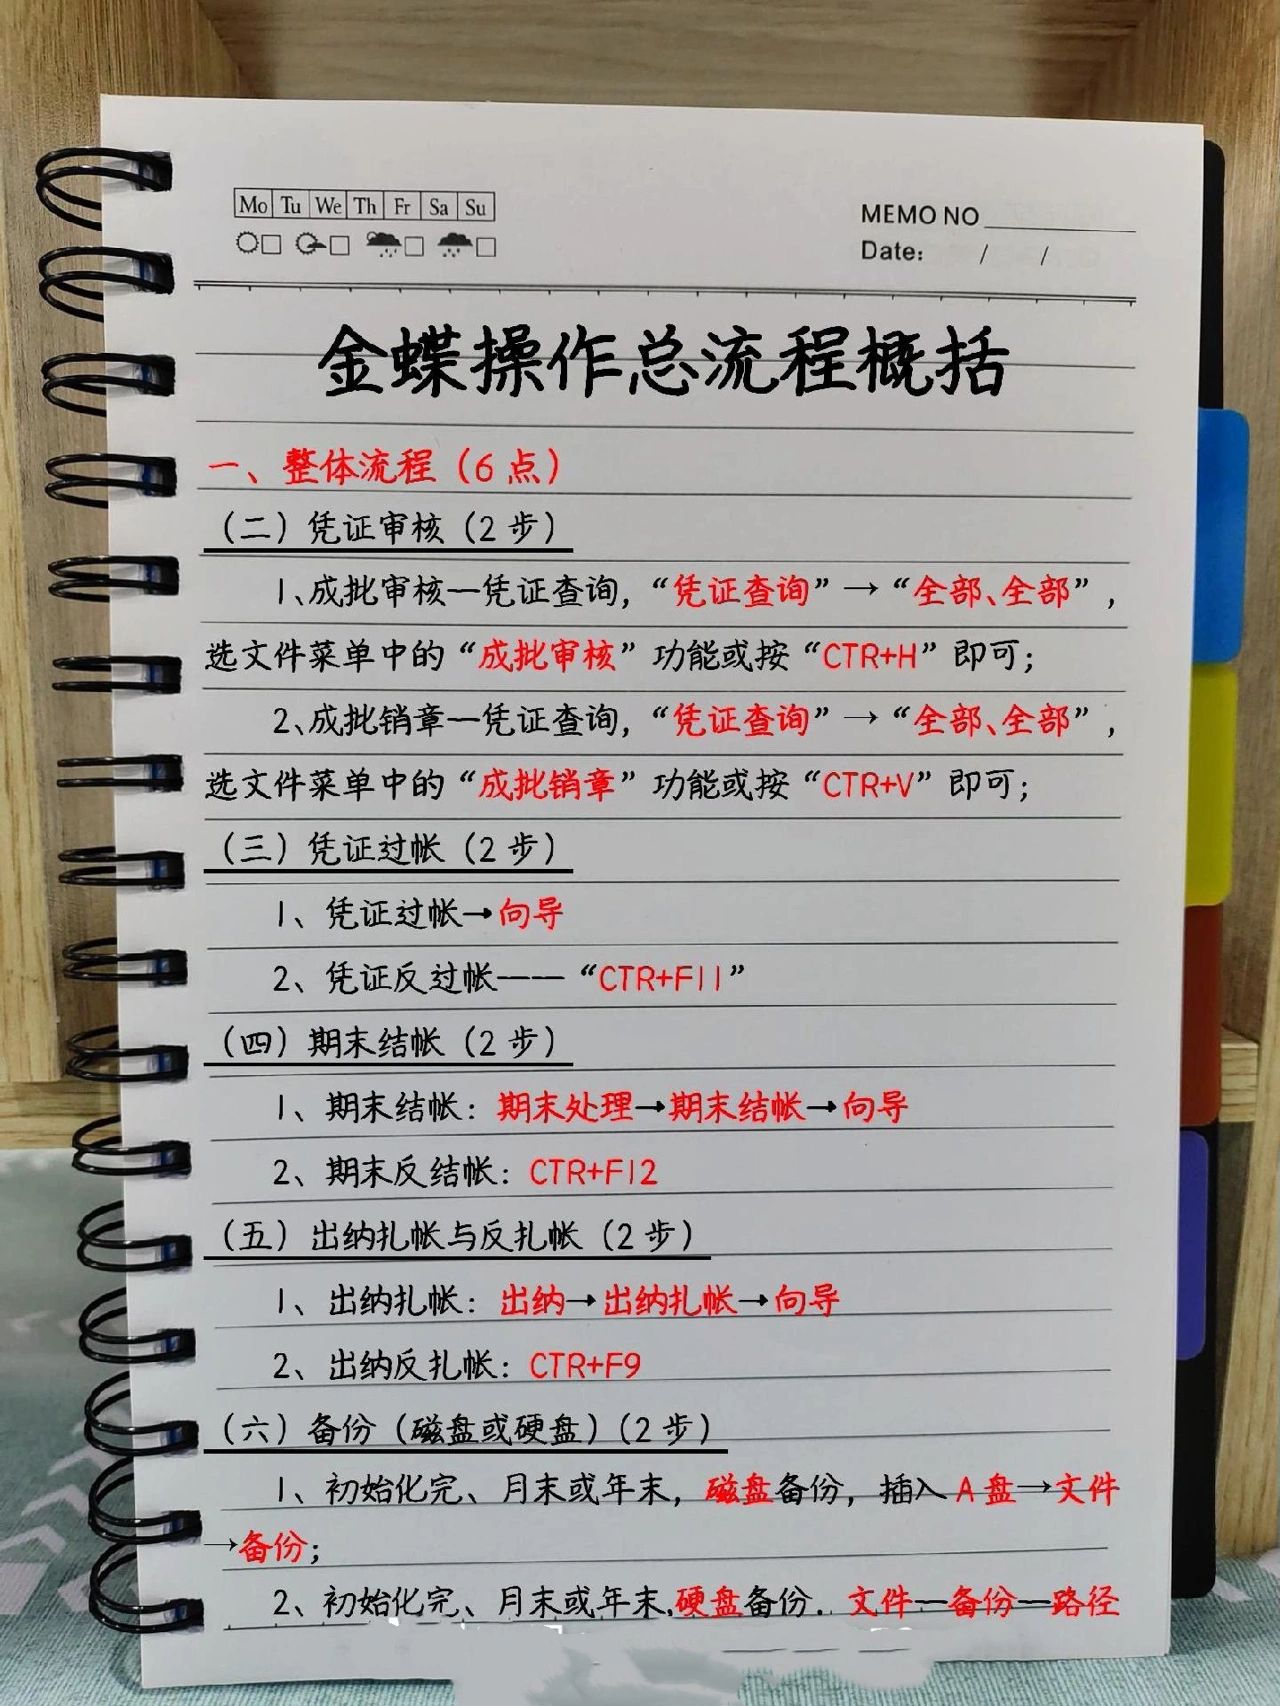 Mo Tu We Th Fr Sa Su
MEMO NO
Date: / /
金蝶操作总流程概括
一、整体流程（6点）
（二）凭证审核（2步）
1、成批审核—凭证查询，“凭证查询”→“全部、全部”，
选文件菜单中的“成批审核”功能或按“CTR+H”即可；
2、成批销章—凭证查询，“凭证查询”→“全部、全部”，
选文件菜单中的“成批销章”功能或按“CTR+V”即可；
（三）凭证过帐（2步）
1、凭证过帐→向导
2、凭证反过帐——“CTR+F11”
（四）期末结帐（2步）
1、期末结帐：期末处理→期末结帐→向导
2、期末反结帐：CTR+F12
（五）出纳扎帐与反扎帐（2步）
1、出纳扎帐：出纳→出纳扎帐→向导
2、出纳反扎帐：CTR+F9
（六）备份（磁盘或硬盘）（2步）
1、初始化完、月末或年末，磁盘备份，插入A盘→文件
→备份；
2、初始化完、月末或年末，硬盘备份．文件—备份—路径